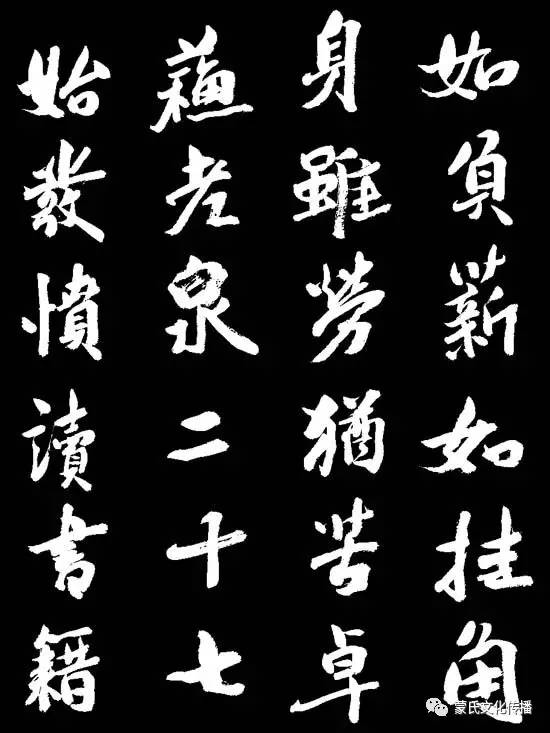 如負薪如挂角
身雖勞猶苦卓
蘓老泉二十七
始發憤讀書籍
蒙氏文化传播